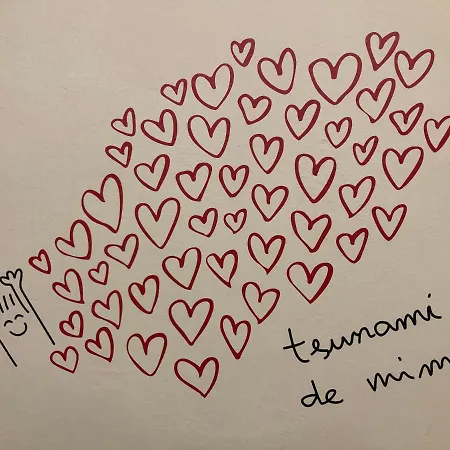 tsunami
de mim